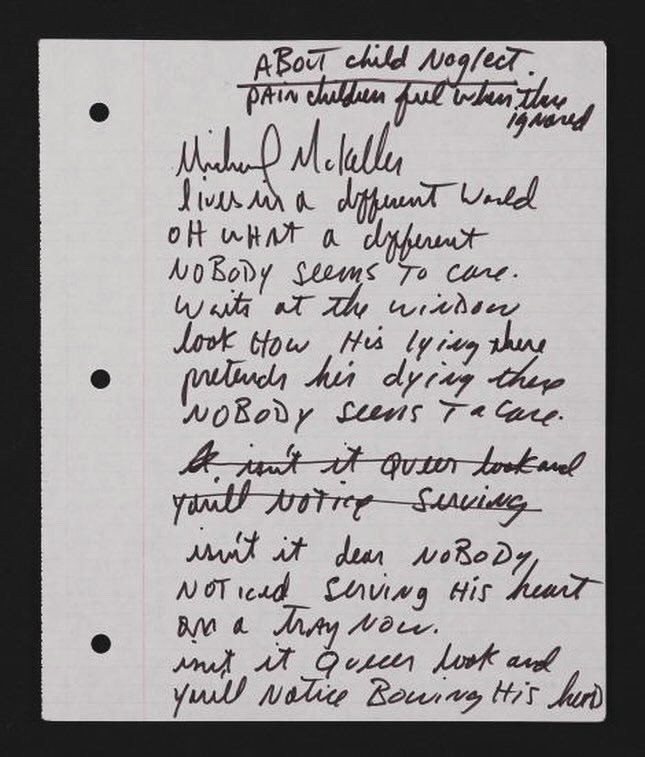 ABOUT child Neglect.
PAIN children feel when they
ignored
Michael McKeller
lives in a different World
OH WHAt a different
NOBODY seems To care.
Waits at the window
look How His lying there
pretends his dying there
NOBODY seems To Care.
isn't it Queer look and
you'll Notice Serving
isn't it dear NOBODY
NOTiced Serving His heart
on a TRAY Now.
isn't it Queer look and
you'll Notice Bowing His head